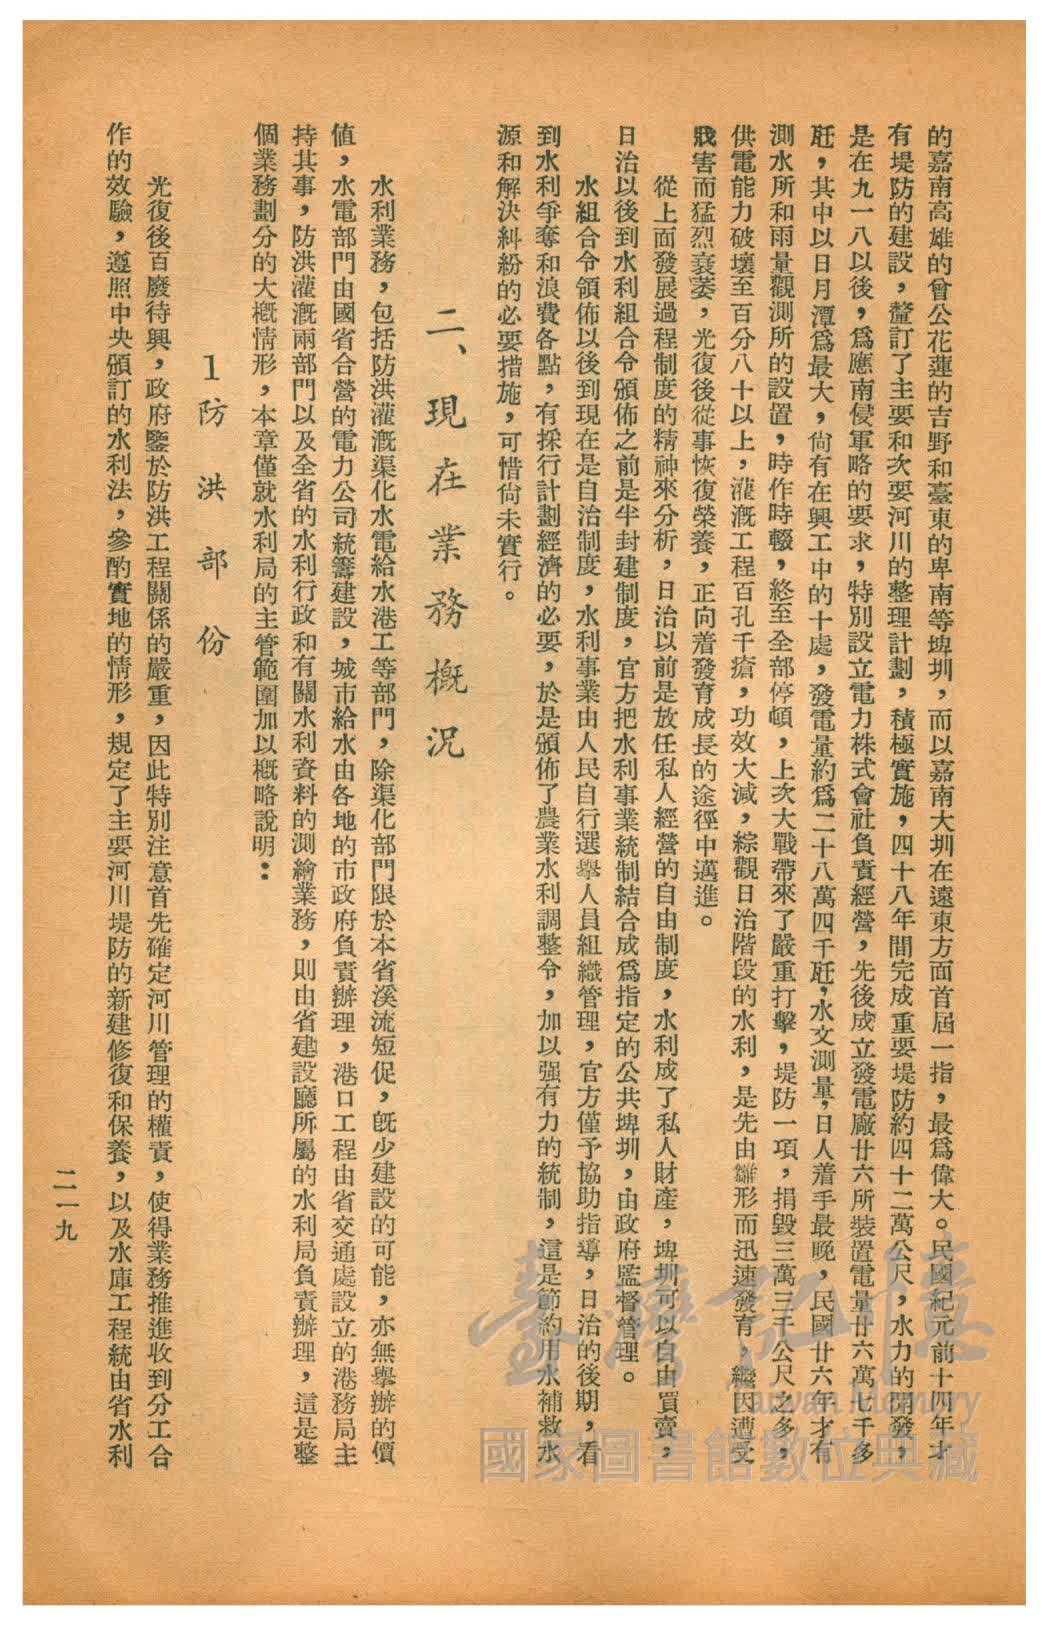 的嘉南高雄的曾公花蓮的吉野和臺東的卑南等埤圳，而以嘉南大圳在遠東方面首屆一指，最爲偉大。民國紀元前十四年才
有堤防的建設，釐訂了主要和次要河川的整理計劃，積極實施，四十八年間完成重要堤防約四十二萬公尺，水力的開發，
是在九一八以後，爲應南侵軍略的要求，特別設立電力株式會社負責經營，先後成立發電廠廿六所裝置電量廿六萬七千多
瓩，其中以日月潭爲最大，尙有在興工中的十處，發電量約爲二十八萬四千瓩，水文測量，日人着手最晚，民國廿六年才有
測水所和雨量觀測所的設置，時作時輟，終至全部停頓，上次大戰帶來了嚴重打擊，堤防一項，損毀三萬三千公尺之多，
供電能力破壞至百分八十以上，灌漑工程百孔千瘡，功效大減，綜觀日治階段的水利，是先由雛形而迅速發育，繼因遭受
戕害而猛烈衰萎，光復後從事恢復榮養，正向着發育成長的途徑中邁進。
從上面發展過程制度的精神來分析，日治以前是放任私人經營的自由制度，水利成了私人財產，埤圳可以自由買賣，
日治以後到水利組合令頒佈之前是半封建制度，官方把水利事業統制結合成爲指定的公共埤圳，由政府監督管理。
水組合令領佈以後到現在是自治制度，水利事業由人民自行選舉人員組織管理，官方僅予協助指導，日治的後期，看
到水利爭奪和浪費各點，有採行計劃經濟的必要，於是頒佈了農業水利調整令，加以强有力的統制，這是節約用水補救水
源和解決糾紛的必要措施，可惜尙未實行。
二、現在業務概況
水利業務，包括防洪灌漑渠化水電給水港工等部門，除渠化部門限於本省溪流短促，旣少建設的可能，亦無舉辦的價
値，水電部門由國省合營的電力公司統籌建設，城市給水由各地的市政府負責辦理，港口工程由省交通處設立的港務局主
持其事，防洪灌漑兩部門以及全省的水利行政和有關水利資料的測繪業務，則由省建設廳所屬的水利局負責辦理，這是整
個業務劃分的大槪情形，本章僅就水利局的主管範圍加以槪略說明：
1防洪部份
光復後百廢待興，政府鑒於防洪工程關係的嚴重，因此特別注意首先確定河川管理的權責，使得業務推進收到分工合
作的效驗，遵照中央頒訂的水利法，參酌實地的情形，規定了主要河川堤防的新建修復和保養，以及水庫工程統由省水利
二一九
臺灣記憶
Taiwan Memory
國家圖書館數位典藏